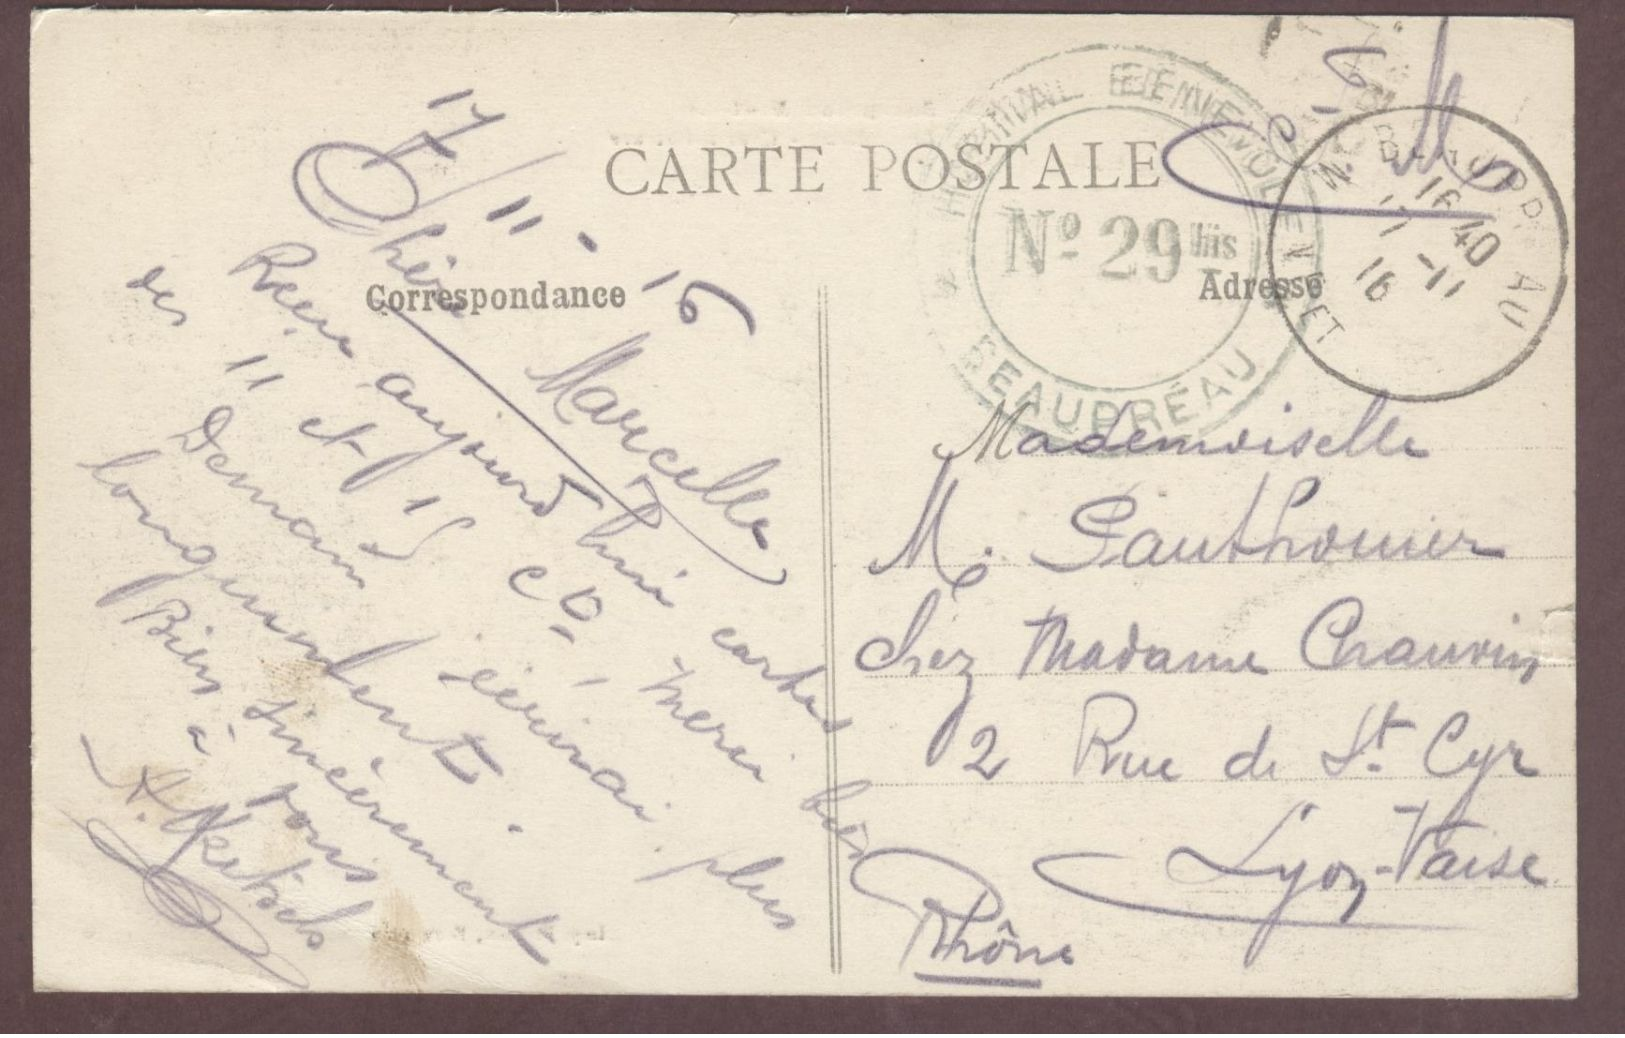 CARTE POSTALE
Correspondance
Adresse
S. M.
HOPITAL BENEVOLE
Nº 29 bis
BEAUPRÉAU
BEAUPRÉAU
16 40
17 -11
16
M. ET
17/11-16
Chère Marcelle
Reçu aujourd'hui cartes
des 11 et 15 ct, merci bien
Demain écrirai plus
longuement.
Bien sincèrement
à vous
Mademoiselle
M. Gauthonier
Chez Madame Chauvin
2 Rue de St. Cyr
Lyon-Vaise
Rhône